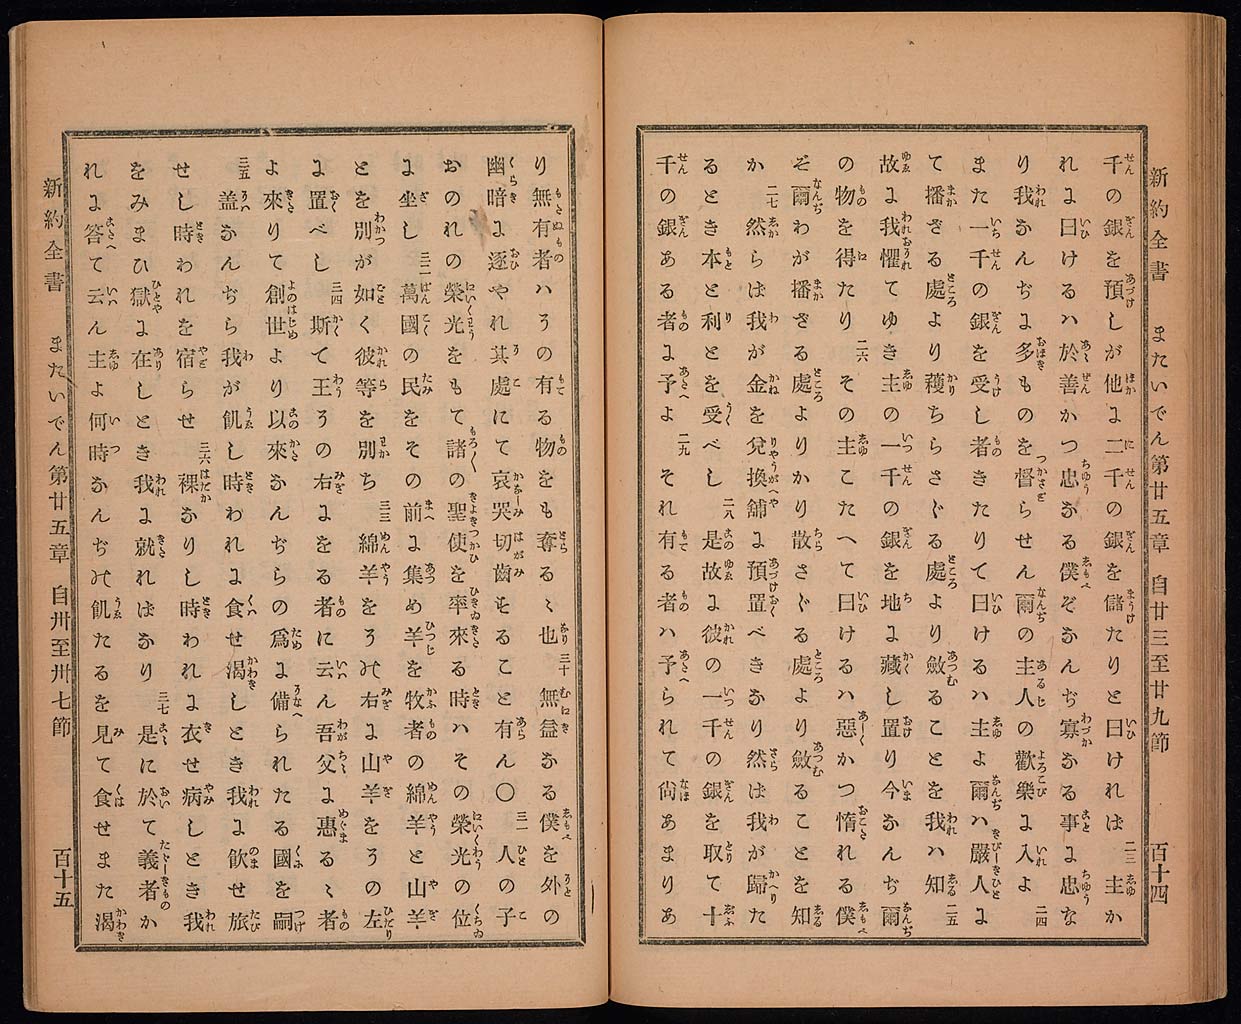 新約全書 またいでん第廿五章 自廿三至廿九節 百十四
千の銀を預しが他に二千の銀を儲たりと曰ければ 二三 主か
れに曰けるハ於善かつ忠なる僕ぞなんぢ寡なる事に忠な
り我なんぢに多ものを督らせん爾の主人の歡樂に入よ 二四
また一千の銀を受し者きたりて曰けるハ主よ爾ハ嚴人に
て播ざる處より穫ちらさゞる處より斂ることを我ハ知 二五
故に我懼てゆき主の一千の銀を地に藏し置り今なんぢ爾
の物を得たり 二六 その主こたへて曰けるハ惡かつ惰れる僕
ぞ爾わが播ざる處よりかり散さゞる處より斂ることを知
か 二七 然らは我が金を兌換舖に預置べきなり然は我が歸た
るとき本と利とを受べし 二八 是故に彼の一千の銀を取て十
千の銀ある者に予よ 二九 それ有る者ハ予られて尙あまりあ
り無有者ハその有る物をも奪るゝ也 三十 無益なる僕を外の
幽暗に逐やれ其處にて哀哭切齒することあらん〇 三一 人の子
おのれの榮光をもて諸の聖使を率來る時ハその榮光の位
に坐し 三二 萬國の民をその前に集め羊を牧者の綿羊と山羊
とを別が如く彼等を別ち 三三 綿羊をその右に山羊をその左
に置べし 三四 斯て王その右にをる者に云ん吾父に惠るゝ者
よ來りて創世より以來なんぢらの爲に備られたる國を嗣
三五 蓋なんぢら我が飢し時われに食せ渴しとき我に飮せ旅
せし時われを宿らせ 三六 裸なりし時われに衣せ病しとき我
をみまひ獄に在しとき我に就ればなり 三七 是に於て義者か
れに答て云ん主よ何時なんぢの飢たるを見て食せまた渴
新約全書 またいでん第廿五章 自卅至卅七節 百十五